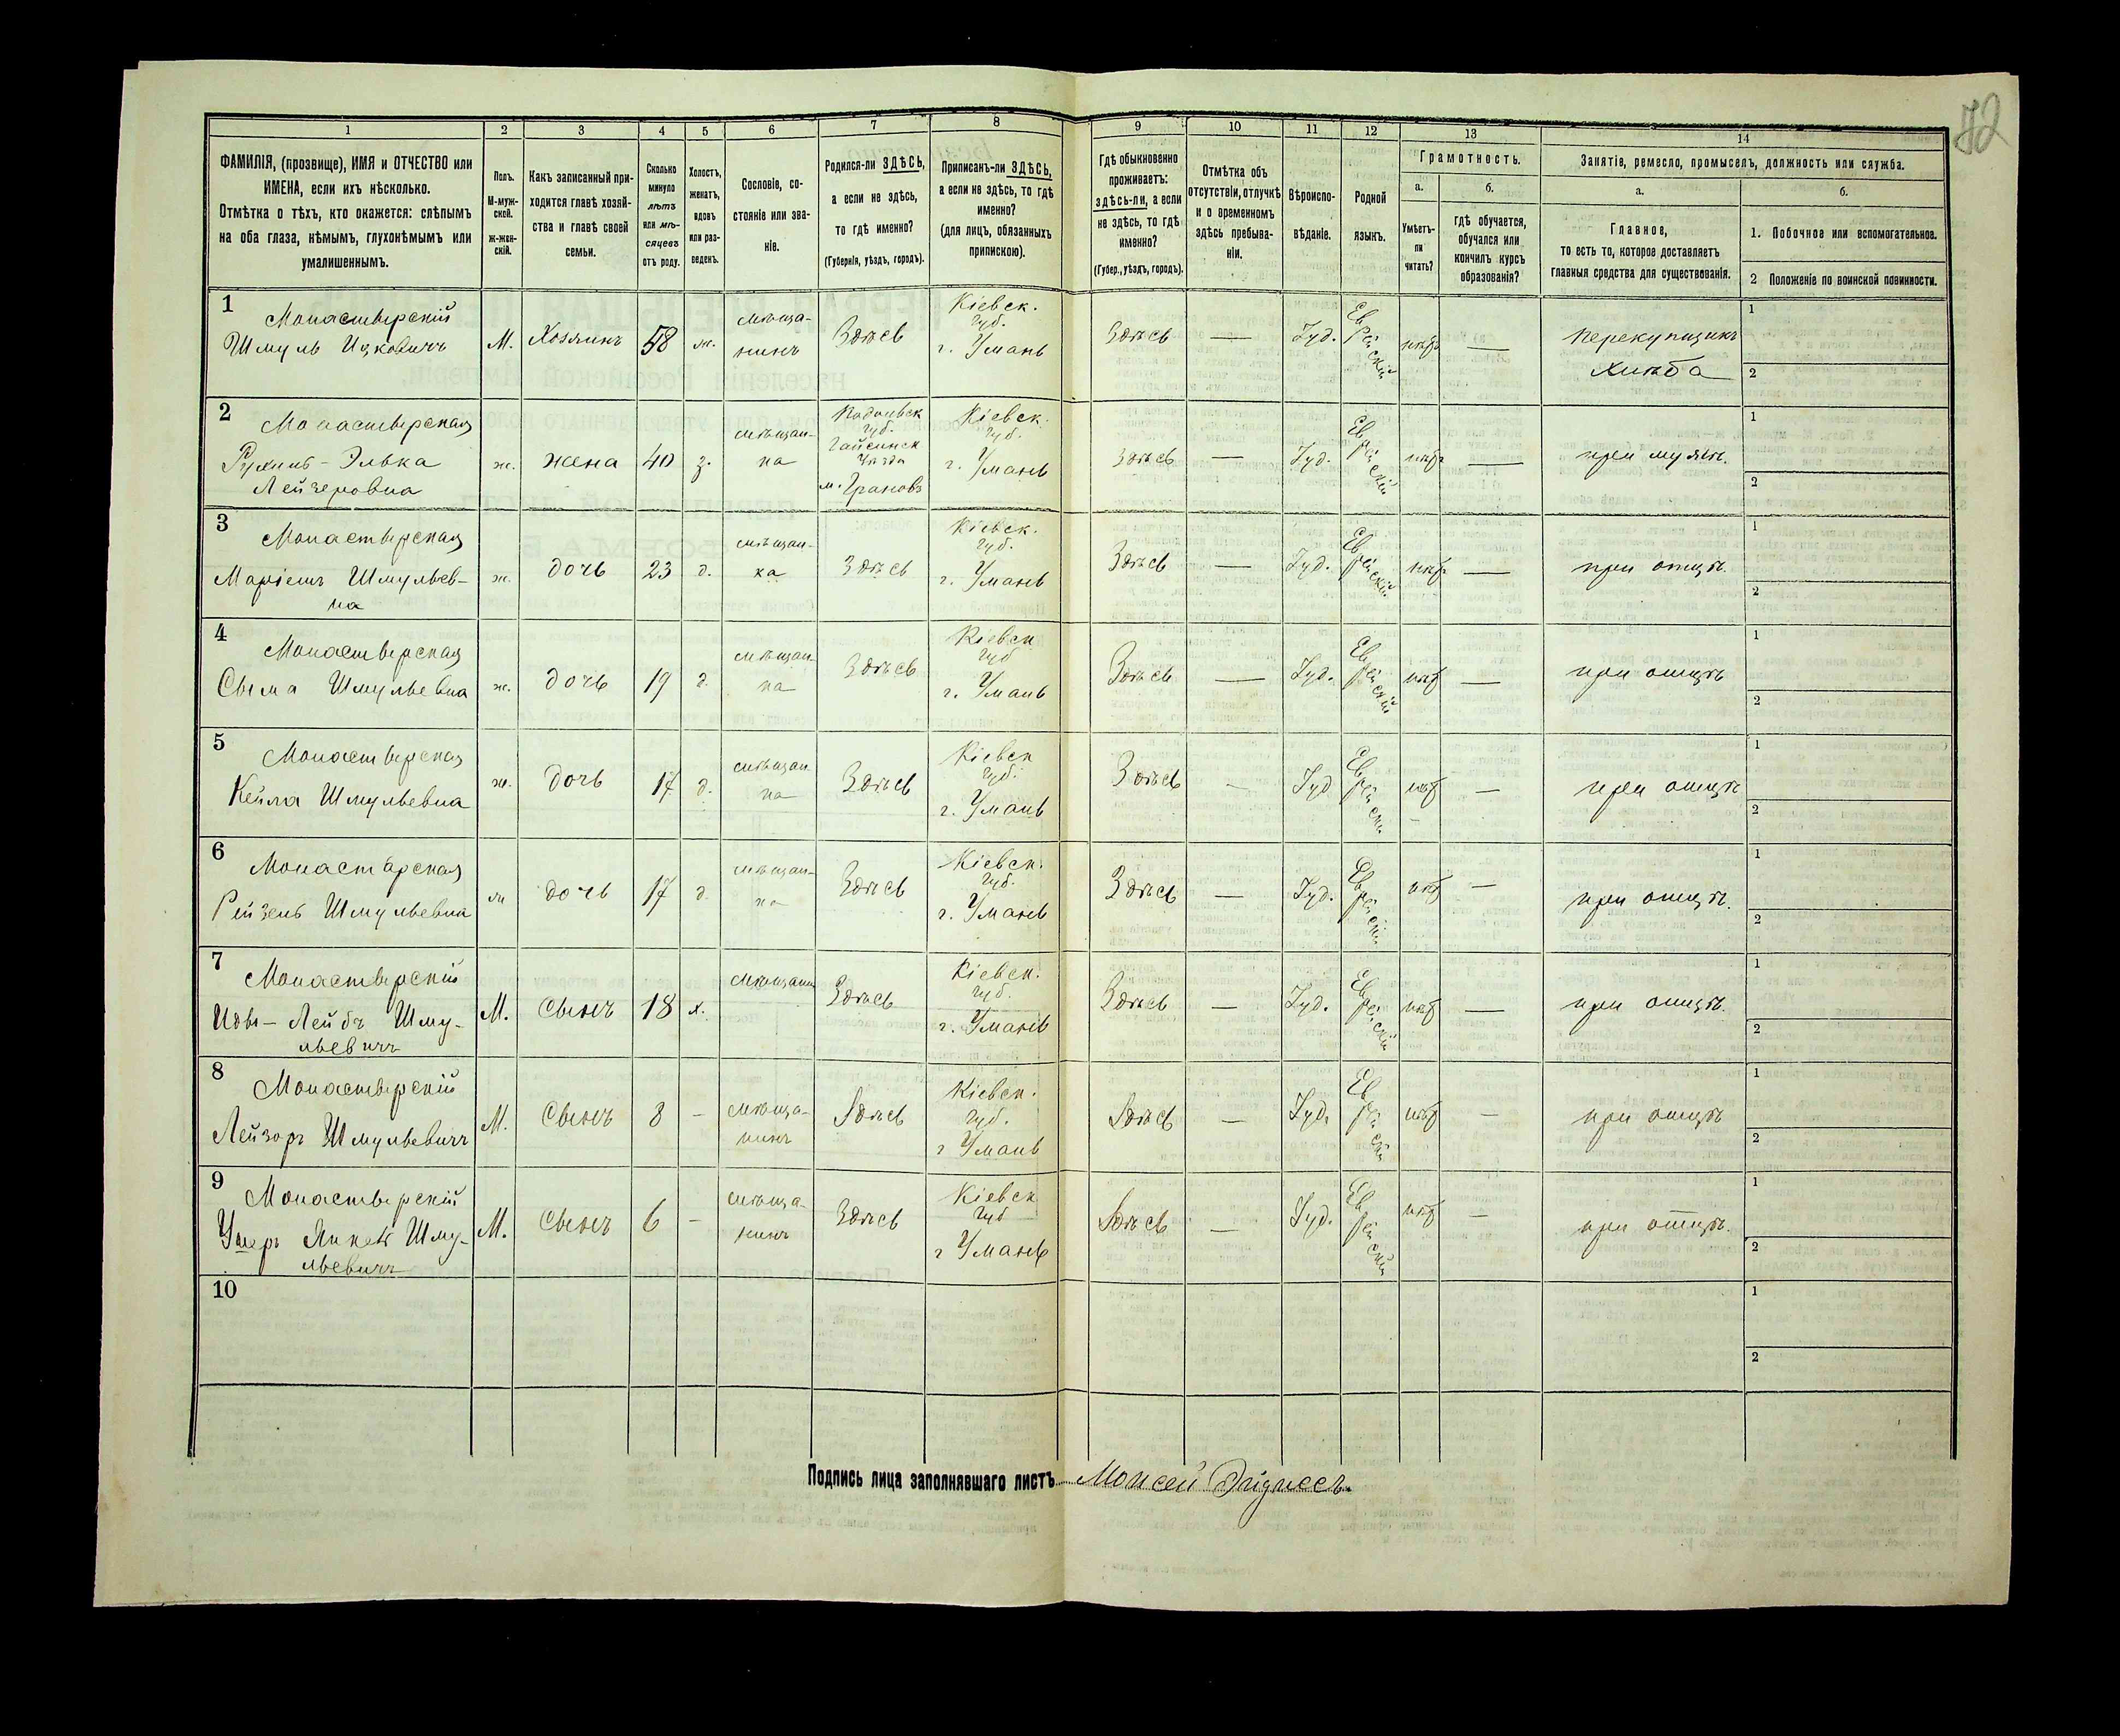 72
1 2 3 4 5 6 7 8 9 10 11 12 13 14
ФАМИЛІЯ, (прозвище), ИМЯ и ОТЧЕСТВО или
ИМЕНА, если ихъ нѣсколько.
Отмѣтка о тѣхъ, кто окажется: слѣпымъ
на оба глаза, нѣмымъ, глухонѣмымъ или
умалишеннымъ.
Полъ.
М-муж-
ской.
ж-жен-
скій.
Какъ записанный при-
ходится главѣ хозяй-
ства и главѣ своей
семьи.
Сколько
минуло
лѣтъ
или мѣ-
сяцевъ
отъ роду.
Холостъ,
женатъ,
вдовъ
или раз-
веденъ.
Сословіе, со-
стояніе или зва-
ніе.
Родился-ли ЗДѢСЬ,
а если не здѣсь,
то гдѣ именно?
(Губернія, уѣздъ, городъ).
Приписанъ-ли ЗДѢСЬ,
а если не здѣсь, то гдѣ
именно?
(для лицъ, обязанныхъ
припискою).
Гдѣ обыкновенно
проживаетъ:
здѣсь-ли, а если
не здѣсь, то гдѣ
именно?
(Губер., уѣздъ, городъ).
Отмѣтка объ
отсутствіи, отлучкѣ
и о временномъ
здѣсь пребыва-
ніи.
Вѣроиспо-
вѣданіе.
Родной
языкъ.
Грамотность.
а.
Умѣетъ-
ли
читать?
б.
гдѣ обучается,
обучался или
кончилъ курсъ
образованія?
Занятіе, ремесло, промыселъ, должность или служба.
а.
Главное,
то есть то, которое доставляетъ
главныя средства для существованія.
б.
1. Побочное или вспомогательное.
2 Положеніе по воинской повинности.
1
Монастырскій
Шмуль Ицковичъ
М.
Хозяинъ
58
ж.
мѣща-
нинъ
Здѣсь
Кіевск.
Губ.
г. Умань
Здѣсь
—
Іуд.
Еврейскій
нѣтъ
—
перекупщикъ
хлѣба
1
2
2
Монастырская
Рухль-Элька
Лейзеровна
ж.
жена
40
з.
мѣщан-
ка
Подольск
губ.
Гайсинск
уѣзда
м. Грановъ
Кіевск.
Губ.
г. Умань
Здѣсь
—
Іуд.
Еврейскій
нѣтъ
—
при мужѣ.
1
2
3
Монастырская
Маріемъ Шмульев-
на
ж.
дочь
23
д.
мѣщан-
ка
Здѣсь
Кіевск.
Губ.
г. Умань
Здѣсь
—
Іуд.
Еврейскій
нѣтъ
—
при отцѣ.
1
2
4
Монастырская
Сыма Шмульевна
ж.
дочь
19
д.
мѣщан-
ка
Здѣсь
Кіевск
Губ
г. Умань
Здѣсь
—
Іуд.
Еврейскій
нѣтъ
—
при отцѣ
1
2
5
Монастырская
Кейла Шмульевна
ж.
дочь
17
д.
мѣщан
ка
Здѣсь
Кіевск
Губ.
г. Умань
Здѣсь
—
Іуд
Еврейскі
нѣтъ
—
при отцѣ
1
2
6
Монастырская
Рейзель Шмульевна
ж
дочь
17
д.
мѣщан-
ка
Здѣсь
Кіевск.
Губ.
г. Умань
Здѣсь
—
Іуд.
Еврейскій
нѣтъ
—
при отцѣ.
1
2
7
Монастырскій
Лейбъ Шму-
льевичъ
М.
Сынъ
18
х.
мѣщанин
Здѣсь
Кіевск.
Губ.
г. Умань
Здѣсь
—
Іуд.
Еврейскій
нѣтъ
—
при отцѣ.
1
2
8
Монастырскій
Лейзоръ Шмульевичъ
М.
Сынъ
8
–
мѣща-
нинъ
Здѣсь
Кіевск.
Губ.
г Умань
Здѣсь
—
Іуд.
Еврейскі
нѣтъ
—
при отцѣ
1
2
9
Монастырскій
Ушеръ Шму-
льевичъ
М.
Сынъ
6
–
мѣща-
нинъ
Здѣсь
Кіевск
Губ
г Умань
Здѣсь
—
Іуд.
Еврейскій
нѣтъ
—
при отцѣ.
1
2
10
1
2
Подпись лица заполнявшаго листъ Моисей